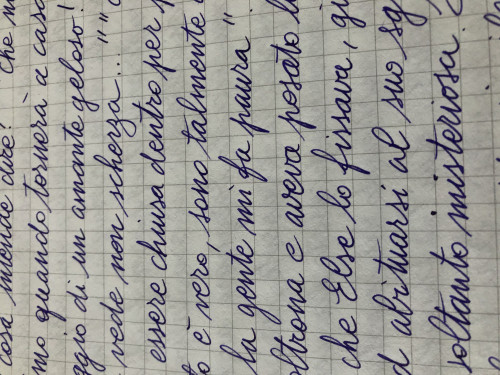 cosa intende dire? Che m
mo quando tornerà a casa
ggio di un amante geloso!
vede non scherza..." "
essere chiusa dentro per p
to è vero, sono talmente
la gente mi fa paura"
oltrona e aveva posato l
che Else lo fissava, gi
d abituarsi al suo sg
soltanto misteriosa.